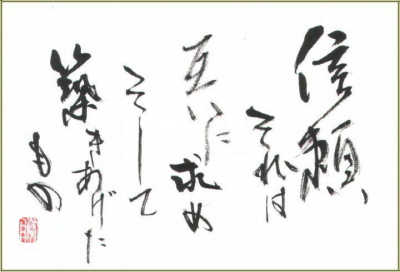 信頼
それは
互いに
求め
そして
築きあげた
もの